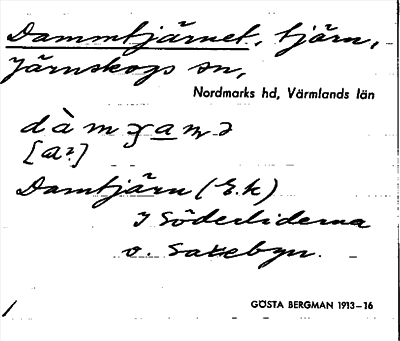 Dammtjärnet, tjärn,
Järnskogs sn,
Nordmarks hd, Värmlands län
[a?]
Damtjärn (E.k)
I Söderliderna
o. Salebyn.
GÖSTA BERGMAN 1913–16
/